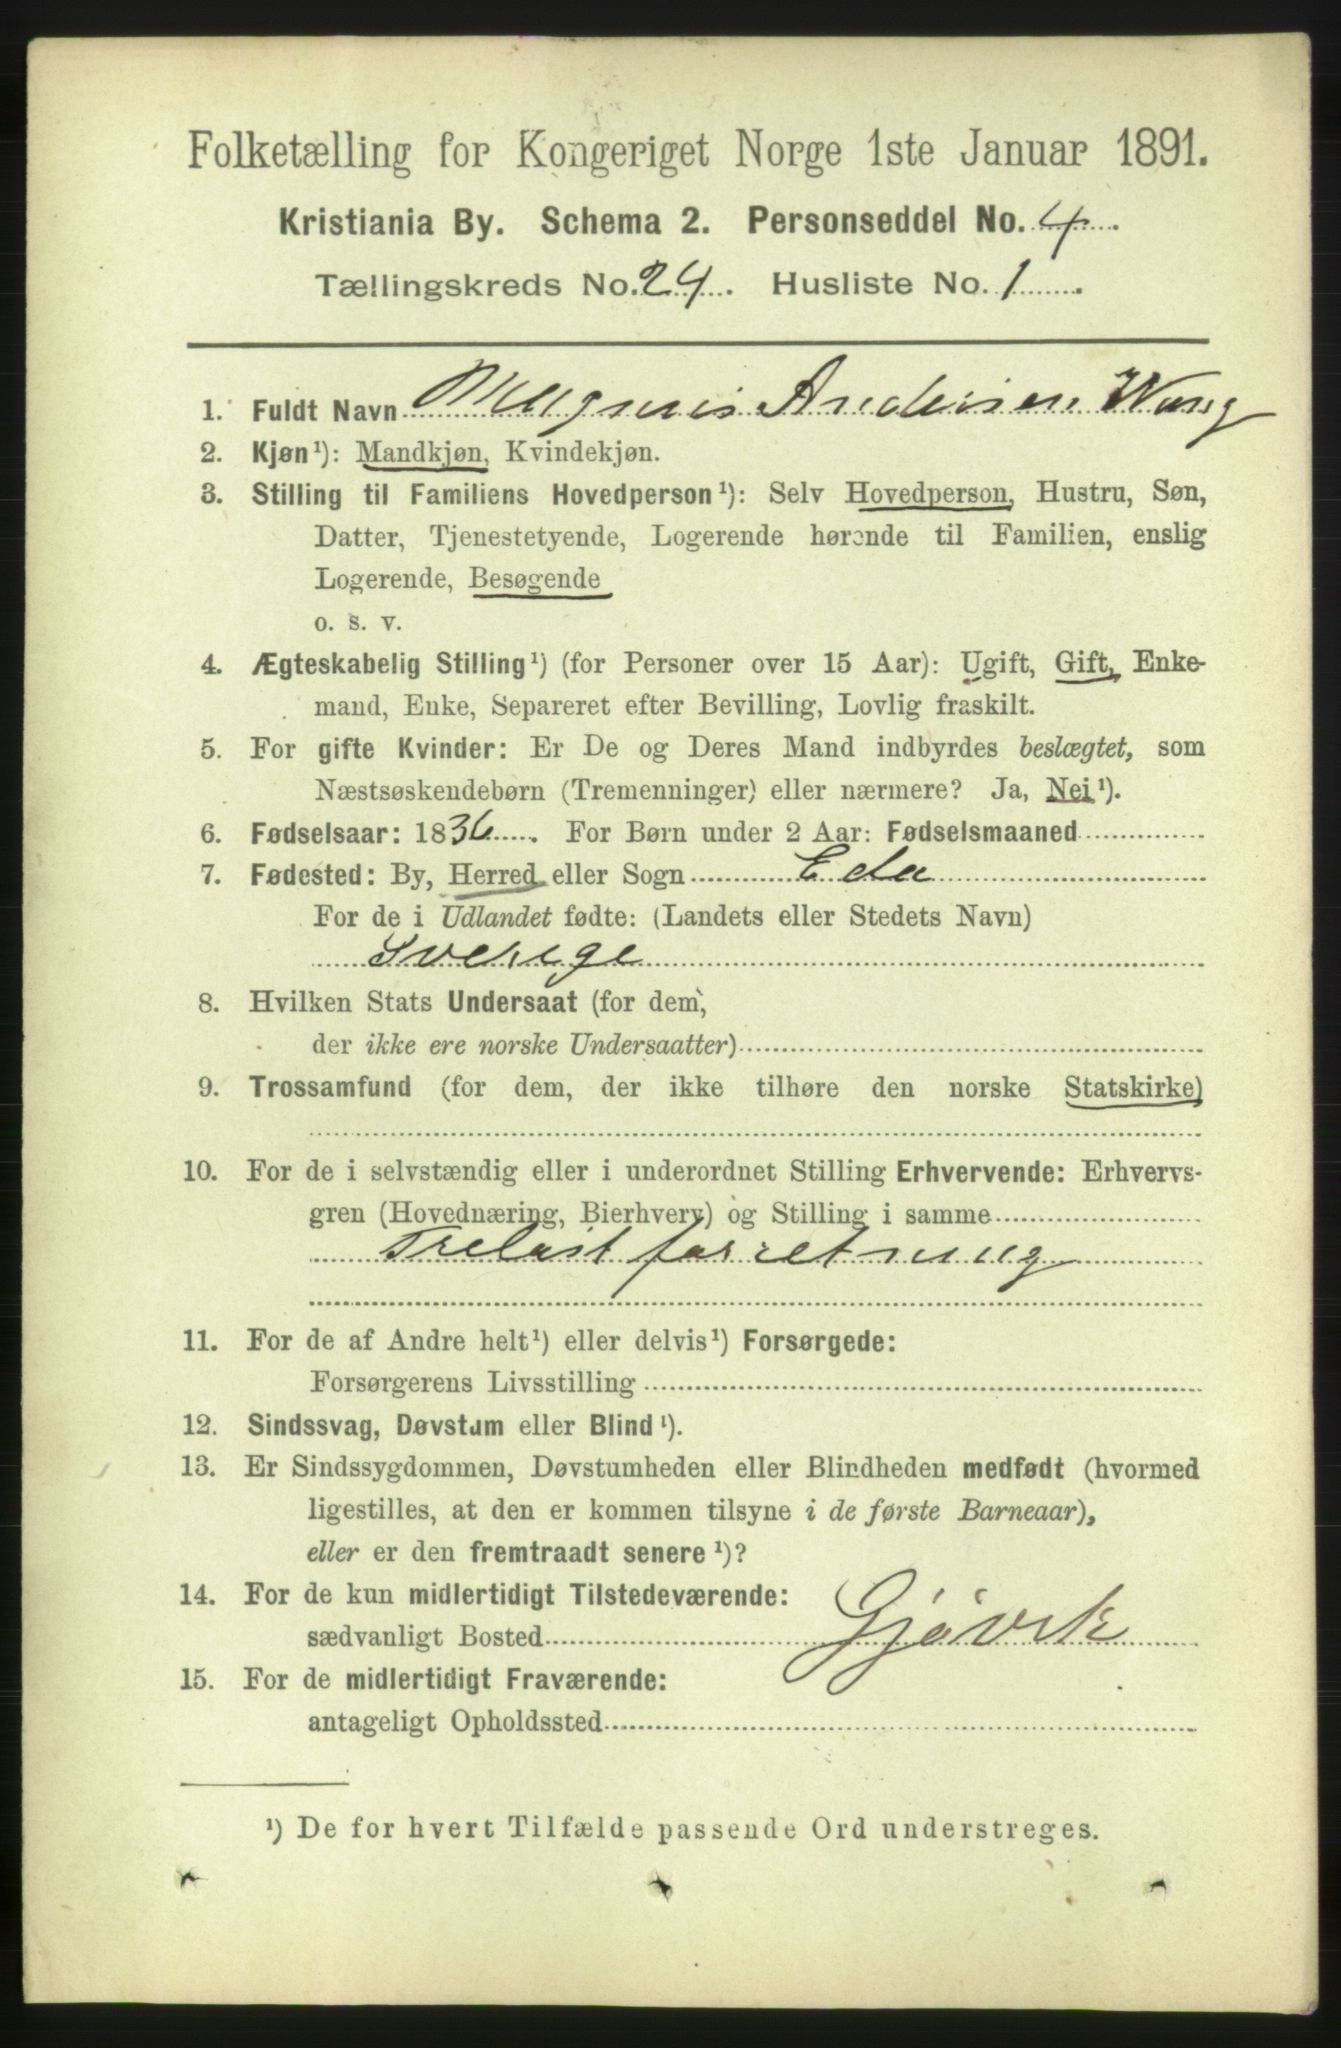 Folketælling for Kongeriget Norge 1ste Januar 1891.
Kristiania By. Schema 2. Personseddel No. 4.
Tællingskreds No. 24. Husliste No. 1.
1. Fuldt Navn Magnus Andersen Wang
2. Kjøn¹): Mandkjøn, Kvindekjøn.
3. Stilling til Familiens Hovedperson¹): Selv Hovedperson, Hustru, Søn,
Datter, Tjenestetyende, Logerende hørende til Familien, enslig
Logerende, Besøgende
o. s. v.
4. Ægteskabelig Stilling¹) (for Personer over 15 Aar): Ugift, Gift, Enke-
mand, Enke, Separeret efter Bevilling, Lovlig fraskilt.
5. For gifte Kvinder: Er De og Deres Mand indbyrdes beslægtet, som
Næstsøskendebørn (Tremenninger) eller nærmere? Ja, Nei¹).
6. Fødselsaar: 1836. For Børn under 2 Aar: Fødselsmaaned
7. Fødested: By, Herred eller Sogn Eda
For de i Udlandet fødte: (Landets eller Stedets Navn)
Sverige
8. Hvilken Stats Undersaat (for dem,
der ikke ere norske Undersaatter)
9. Trossamfund (for dem, der ikke tilhøre den norske Statskirke)
10. For de i selvstændig eller i underordnet Stilling Erhvervende: Erhvervs-
gren (Hovednæring, Bierhverv) og Stilling i samme
Trelastforretning
11. For de af Andre helt¹) eller delvis¹) Forsørgede:
Forsørgerens Livsstilling
12. Sindssvag, Døvstum eller Blind¹).
13. Er Sindssygdommen, Døvstumheden eller Blindheden medfødt (hvormed
ligestilles, at den er kommen tilsyne i de første Barneaar),
eller er den fremtraadt senere¹)?
14. For de kun midlertidigt Tilstedeværende:
sædvanligt Bosted Gjövik
15. For de midlertidigt Fraværende:
antageligt Opholdssted
¹) De for hvert Tilfælde passende Ord understreges.